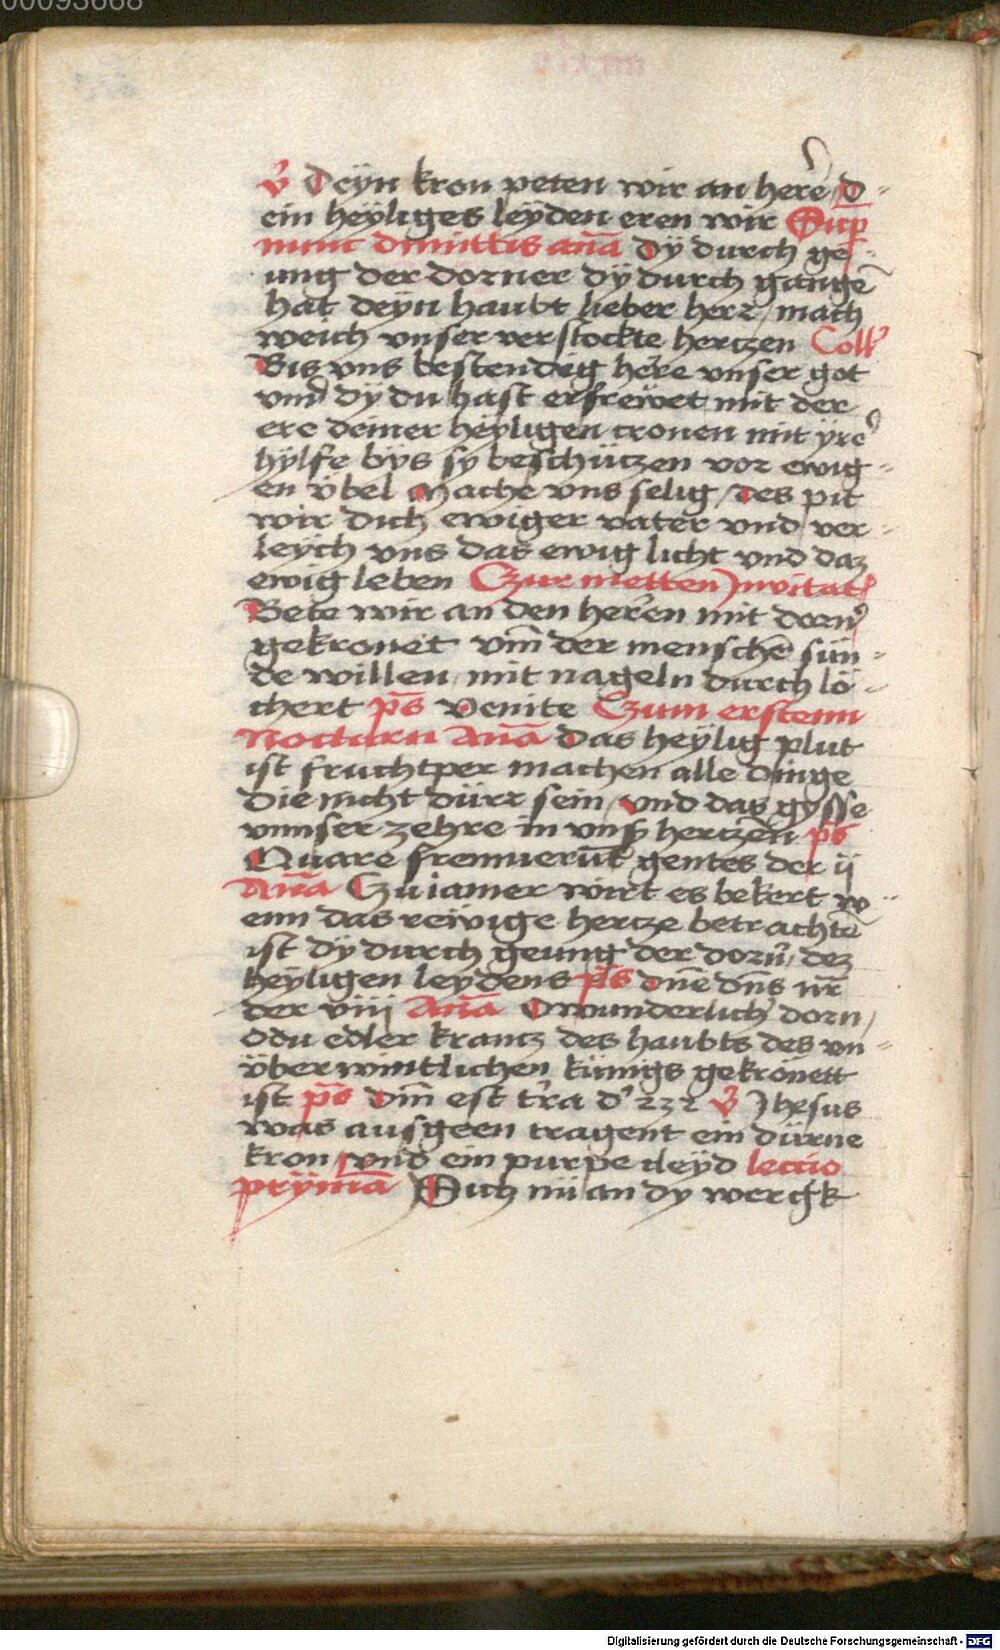 00093668
V̾ Deÿn kron peten wir an here d-
ein heÿliges leÿden eren wir Sup̄
nunc dimittis an̄a Dÿ durch ge-
ung der dorner dÿ durch gangē
hat deÿn haubt lieber herr / mach
weich vnser verstockte hertzen Coll̾
Bis vns bestendig here vnser got
vnd dÿ du hast erfrewet mit der
ere deiner heÿligen cronen mit ÿre̾
hÿlfe bÿs sy beschützen vor ewig-
en vbel Mache vns selig / Des pit
wir dich ewiger vater vnd ver-
leÿch vns das ewig licht vnd daz
ewig leben Czur metten Jnvitat̾
Bete wir an den herren mit dorn̾
gekronet vm̄ der menschē sün-
de willen / mit nageln durch lö-
chert ps̄ Venite Czum erstenn
Nocturn An̄a Das heÿlig plut
ist fruchtper machen alle dinge
Die nicht dürr sein / vnd das gysse
vnnser zehre in vnß hertzen ps̄
Quare fremuerūt gentes der ij
An̄a Czu iamer wirt es bekert w-
enn das rewige hertze betrachtē
ist dÿ durch geung der dorn̾ / dez
heÿligen leydens ps̄ Dn̄e dn̄s nr̄
der viii An̄a O wunderlich̾ dorn /
O du edler krantz des haubts des vn-
vberwintlichen künigs gekrönett
ist ps̄ Dn̄i est tr̄a d̾ 232 V̾ Jhesus
was ausgeen tragent ein dürne
kron / vnd ein purpe cleÿd lectio
prÿm̄a Sich nü an dy werck
Digitalisierung gefördert durch die Deutsche Forschungsgemeinschaft - DFG